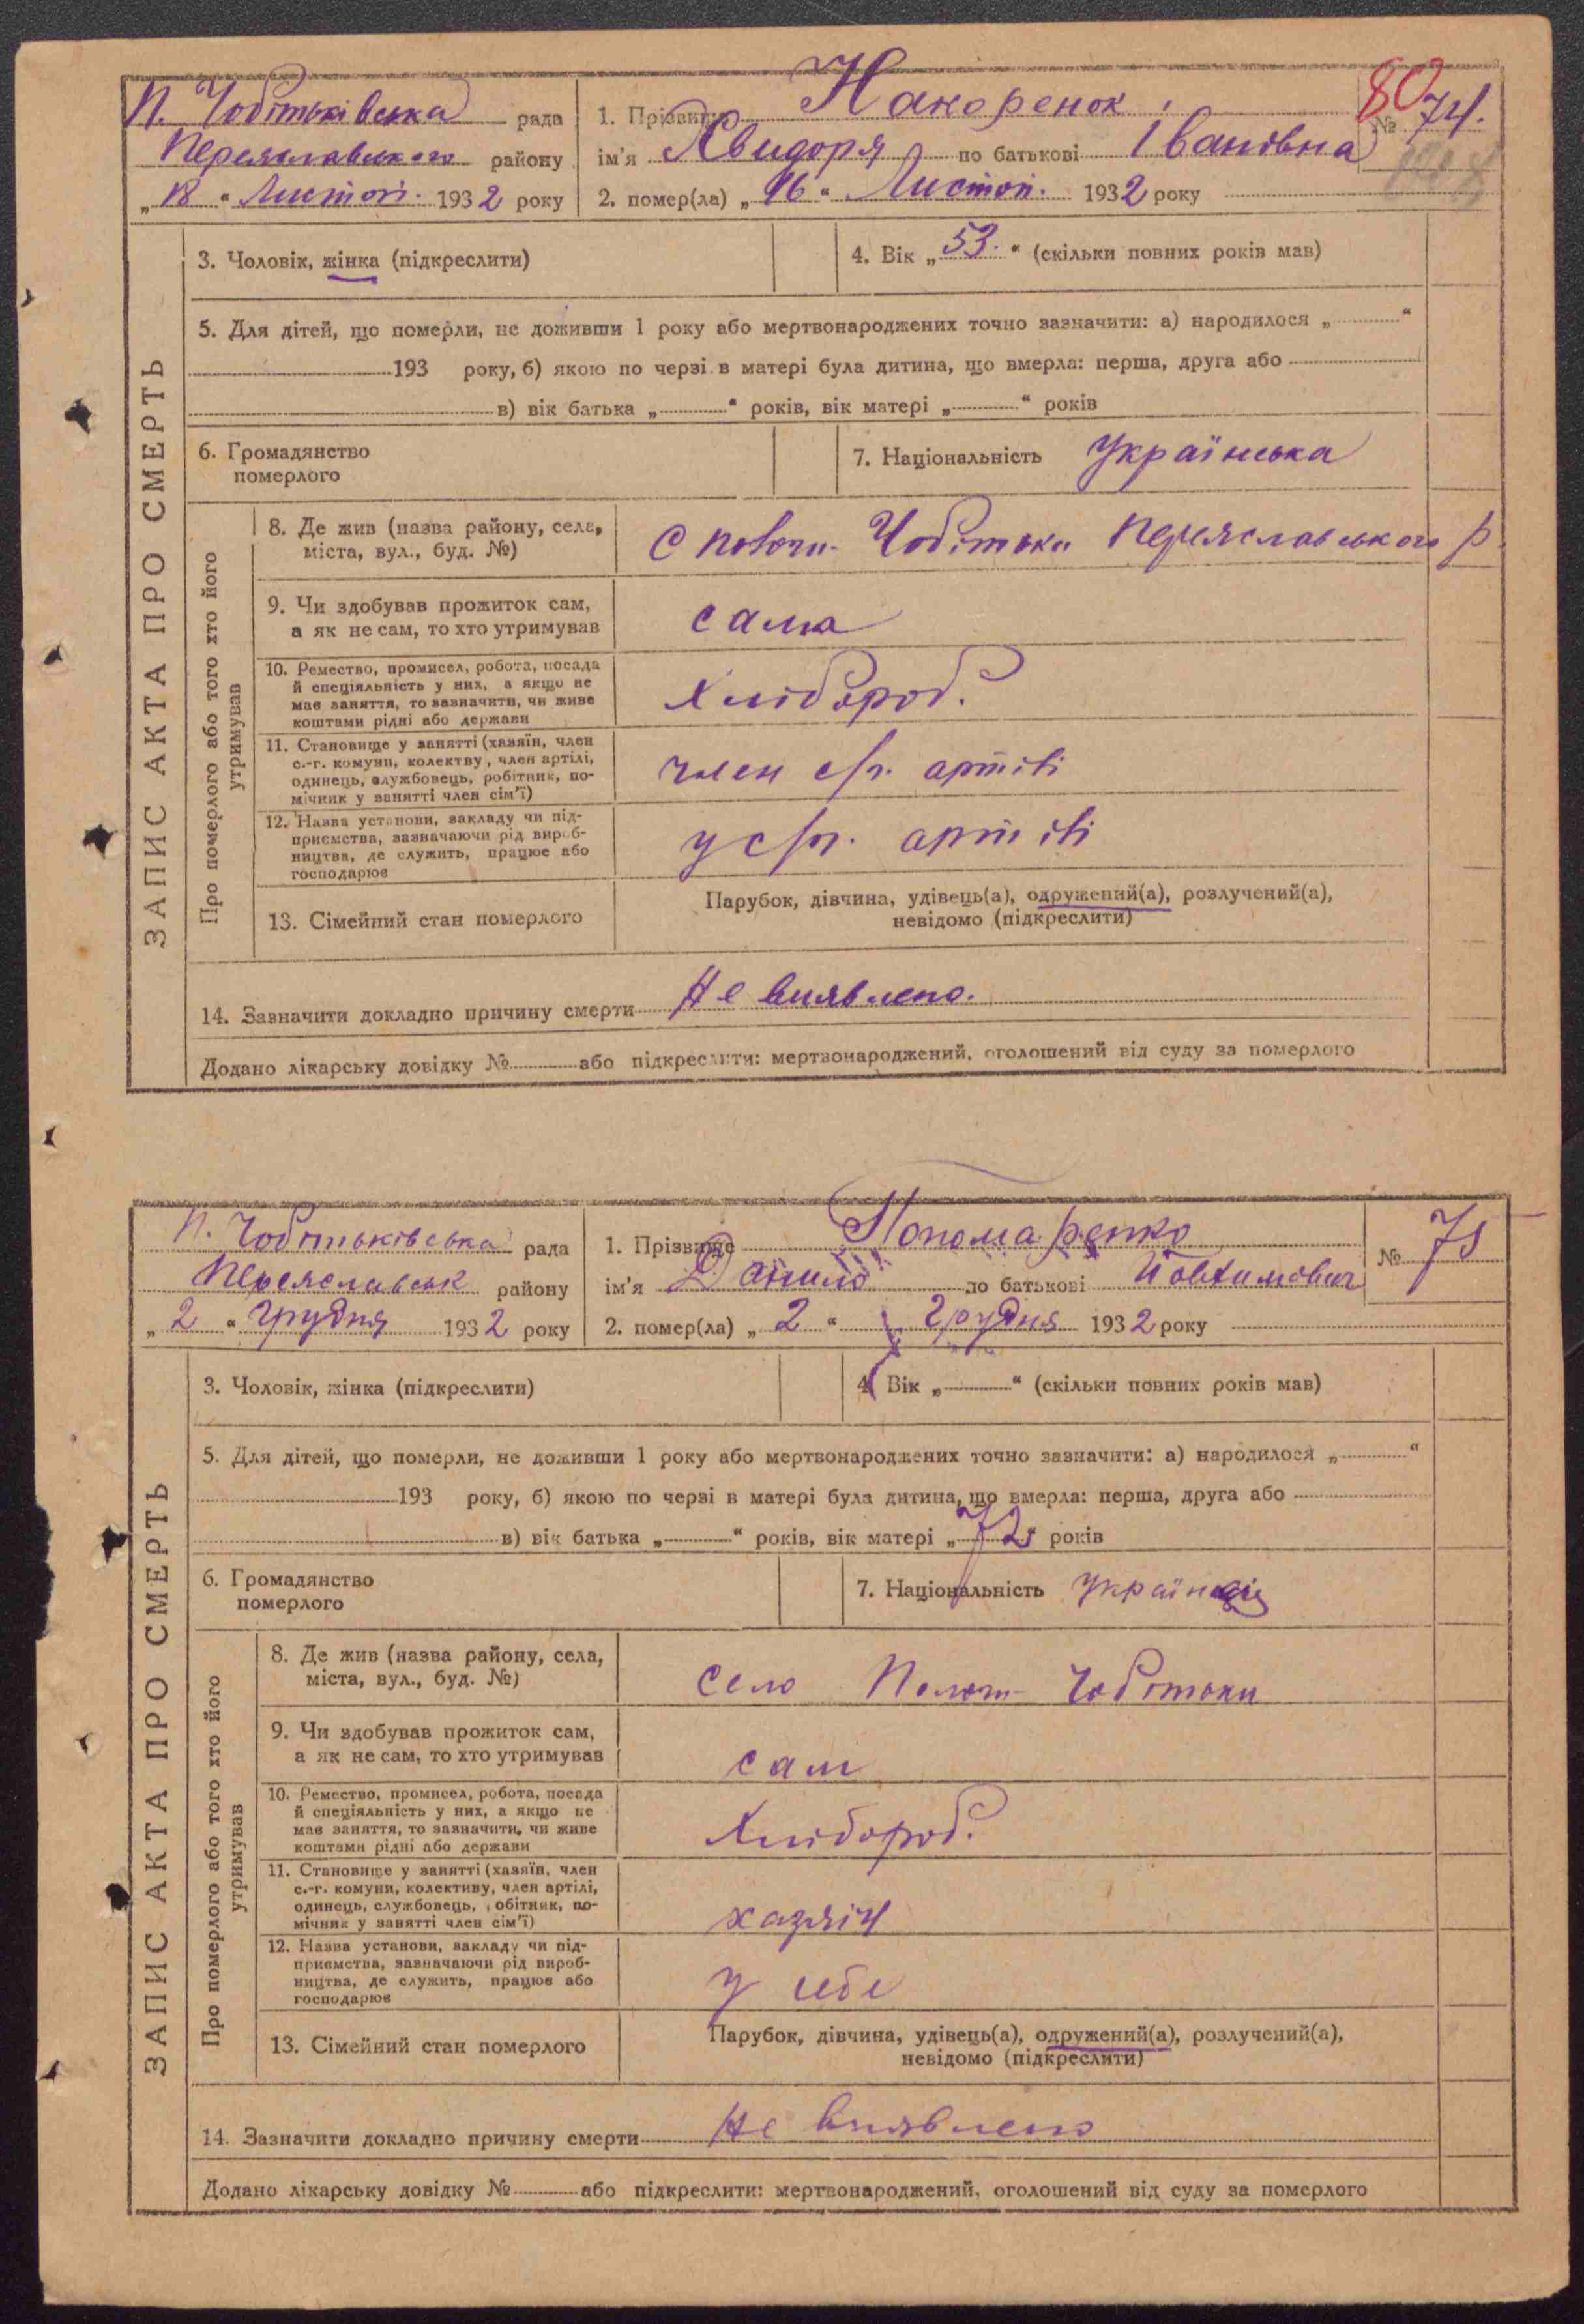 П. Чобітьківська рада
Переяславського району
„18“ Листоп. 1932 року
1. Прізвище Накоренок
ім'я Явидоря по батькові Івановна
2. помер(ла) „16“ Листоп. 1932 року
80
№ 74.
ЗАПИС АКТА ПРО СМЕРТЬ
3. Чоловік, жінка (підкреслити)
4. Вік „53.“ (скільки повних років мав)
5. Для дітей, що померли, не доживши 1 року або мертвонароджених точно зазначити: а) народилося „ “
193 року, б) якою по черзі в матері була дитина, що вмерла: перша, друга або
в) вік батька „ “ років, вік матері „ “ років
6. Громадянство
померлого
7. Національність Українська
Про померлого або того хто його
утримував
8. Де жив (назва району, села,
міста, вул., буд. №)
С Чобітьки Переяславського р.
9. Чи здобував прожиток сам,
а як не сам, то хто утримував
сама
10. Ремество, промисел, робота, посада
й спеціяльність у них, а якщо не
має заняття, то зазначити, чи живе
коштами рідні або держави
Хлібород.
11. Становище у занятті (хазяїн, член
с.-г. комуни, колектву, член артілі,
одинець, службовець, робітник, по-
мічник у занятті член сім'ї)
член с/г. артілі
12. Назва установи, закладу чи під-
приємства, зазначаючи рід вироб-
ництва, де служить, працює або
господарює
у с/г. артілі
13. Сімейний стан померлого
Парубок, дівчина, удівець(а), одружений(а), розлучений(а),
невідомо (підкреслити)
14. Зазначити докладно причину смерти Не виявлено.
Додано лікарську довідку № або підкреслити: мертвонароджений, оголошений від суду за померлого
П. Чобітьківська рада
Переяславськ району
„2“ Грудня 1932 року
1. Прізвище Пономаренко
ім'я Данило по батькові Йовхимович
2. помер(ла) „2“ Грудня 1932 року
№ 75
ЗАПИС АКТА ПРО СМЕРТЬ
3. Чоловік, жінка (підкреслити)
4. Вік „ “ (скільки повних років мав)
5. Для дітей, що померли, не доживши 1 року або мертвонароджених точно зазначити: а) народилося „ “
193 року, б) якою по черзі в матері була дитина, що вмерла: перша, друга або
в) вік батька „ “ років, вік матері „72“ років
6. Громадянство
померлого
7. Національність Українець
Про померлого або того хто його
утримував
8. Де жив (назва району, села,
міста, вул., буд. №)
село Чобітьки
9. Чи здобував прожиток сам,
а як не сам, то хто утримував
сам
10. Ремество, промисел, робота, посада
й спеціяльність у них, а якщо не
має заняття, то зазначити, чи живе
коштами рідні або держави
Хлібород.
11. Становище у занятті (хазяїн, член
с.-г. комуни, колективу, член артілі,
одинець, службовець, робітник, по-
мічник у занятті член сім'ї)
хазяїн
12. Назва установи, закладу чи під-
приємства, зазначаючи рід вироб-
ництва, де служить, працює або
господарює
у себе
13. Сімейний стан померлого
Парубок, дівчина, удівець(а), одружений(а), розлучений(а),
невідомо (підкреслити)
14. Зазначити докладно причину смерти Не виявлено
Додано лікарську довідку № або підкреслити: мертвонароджений, оголошений від суду за померлого